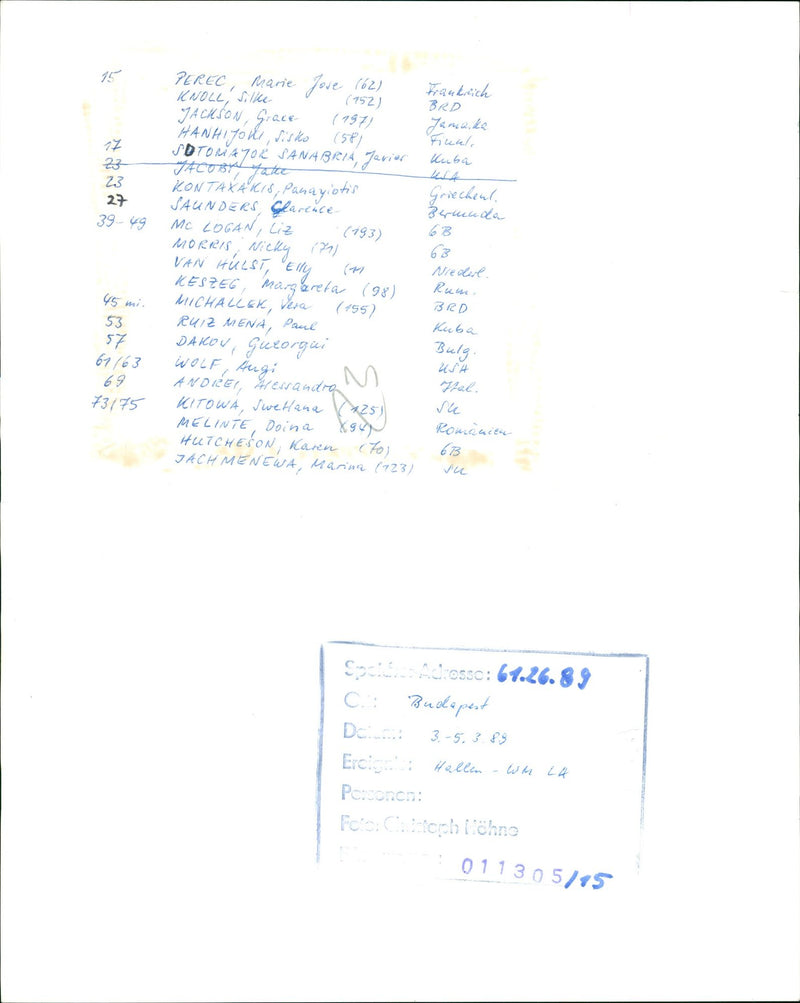 15 PEREC, Marie Jose (62) Frankreich
KNOLL, Silke (152) BRD
JACKSON, Grace (197) Jamaika
HANHIJOKI, Sisko (58) Finnl.
17 SOTOMAJOR SANABRIA, Javier Kuba
23 JACOBY, Jake USA
23 KONTAXAKIS, Panayiotis Griechenl.
27 SAUNDERS, Clarence Bermuda
39-49 MC LOGAN, Liz (193) GB
MORRIS, Nicky (71) GB
VAN HULST, Elly (11 Niederl.
KESZEG, Margareta (98) Rum.
45 mi. MICHALLEK, Vera (155) BRD
53 RUIZ MENA, Paul Kuba
57 DAKOV, Gueorgui Bulg.
61/63 WOLF, Augi USA
69 ANDREI, Alessandro Ital.
73/75 KITOWA, Swetlana (125) SU
MELINTE, Doina (94) Romänien
HUTCHESON, Karen (70) GB
JACHMENEWA, Marina (123) SU
Speicher-Adresse: 61.26.89
Ort: Budapest
Datum: 3.-5.3.89
Ereignis: Hallen-WM LA
Personen:
Foto: Christoph Höhne
011305/15